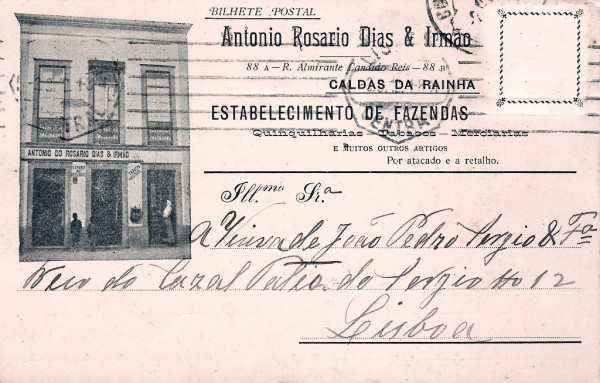 BILHETE POSTAL
Antonio Rosario Dias & Irmão
88 A — R. Almirante Candido Reis — 88 B
CALDAS DA RAINHA
ESTABELECIMENTO DE FAZENDAS
Quinquilharias - Tabacos - Merciarias
E MUITOS OUTROS ARTIGOS
Por atacado e a retalho.
ANTONIO DO ROSARIO DIAS & IRMÃO
Ill.mo Sr.a
A Viuva de João Pedro Sergio & Fa
do Cazal do Sergio No 12
Lisboa